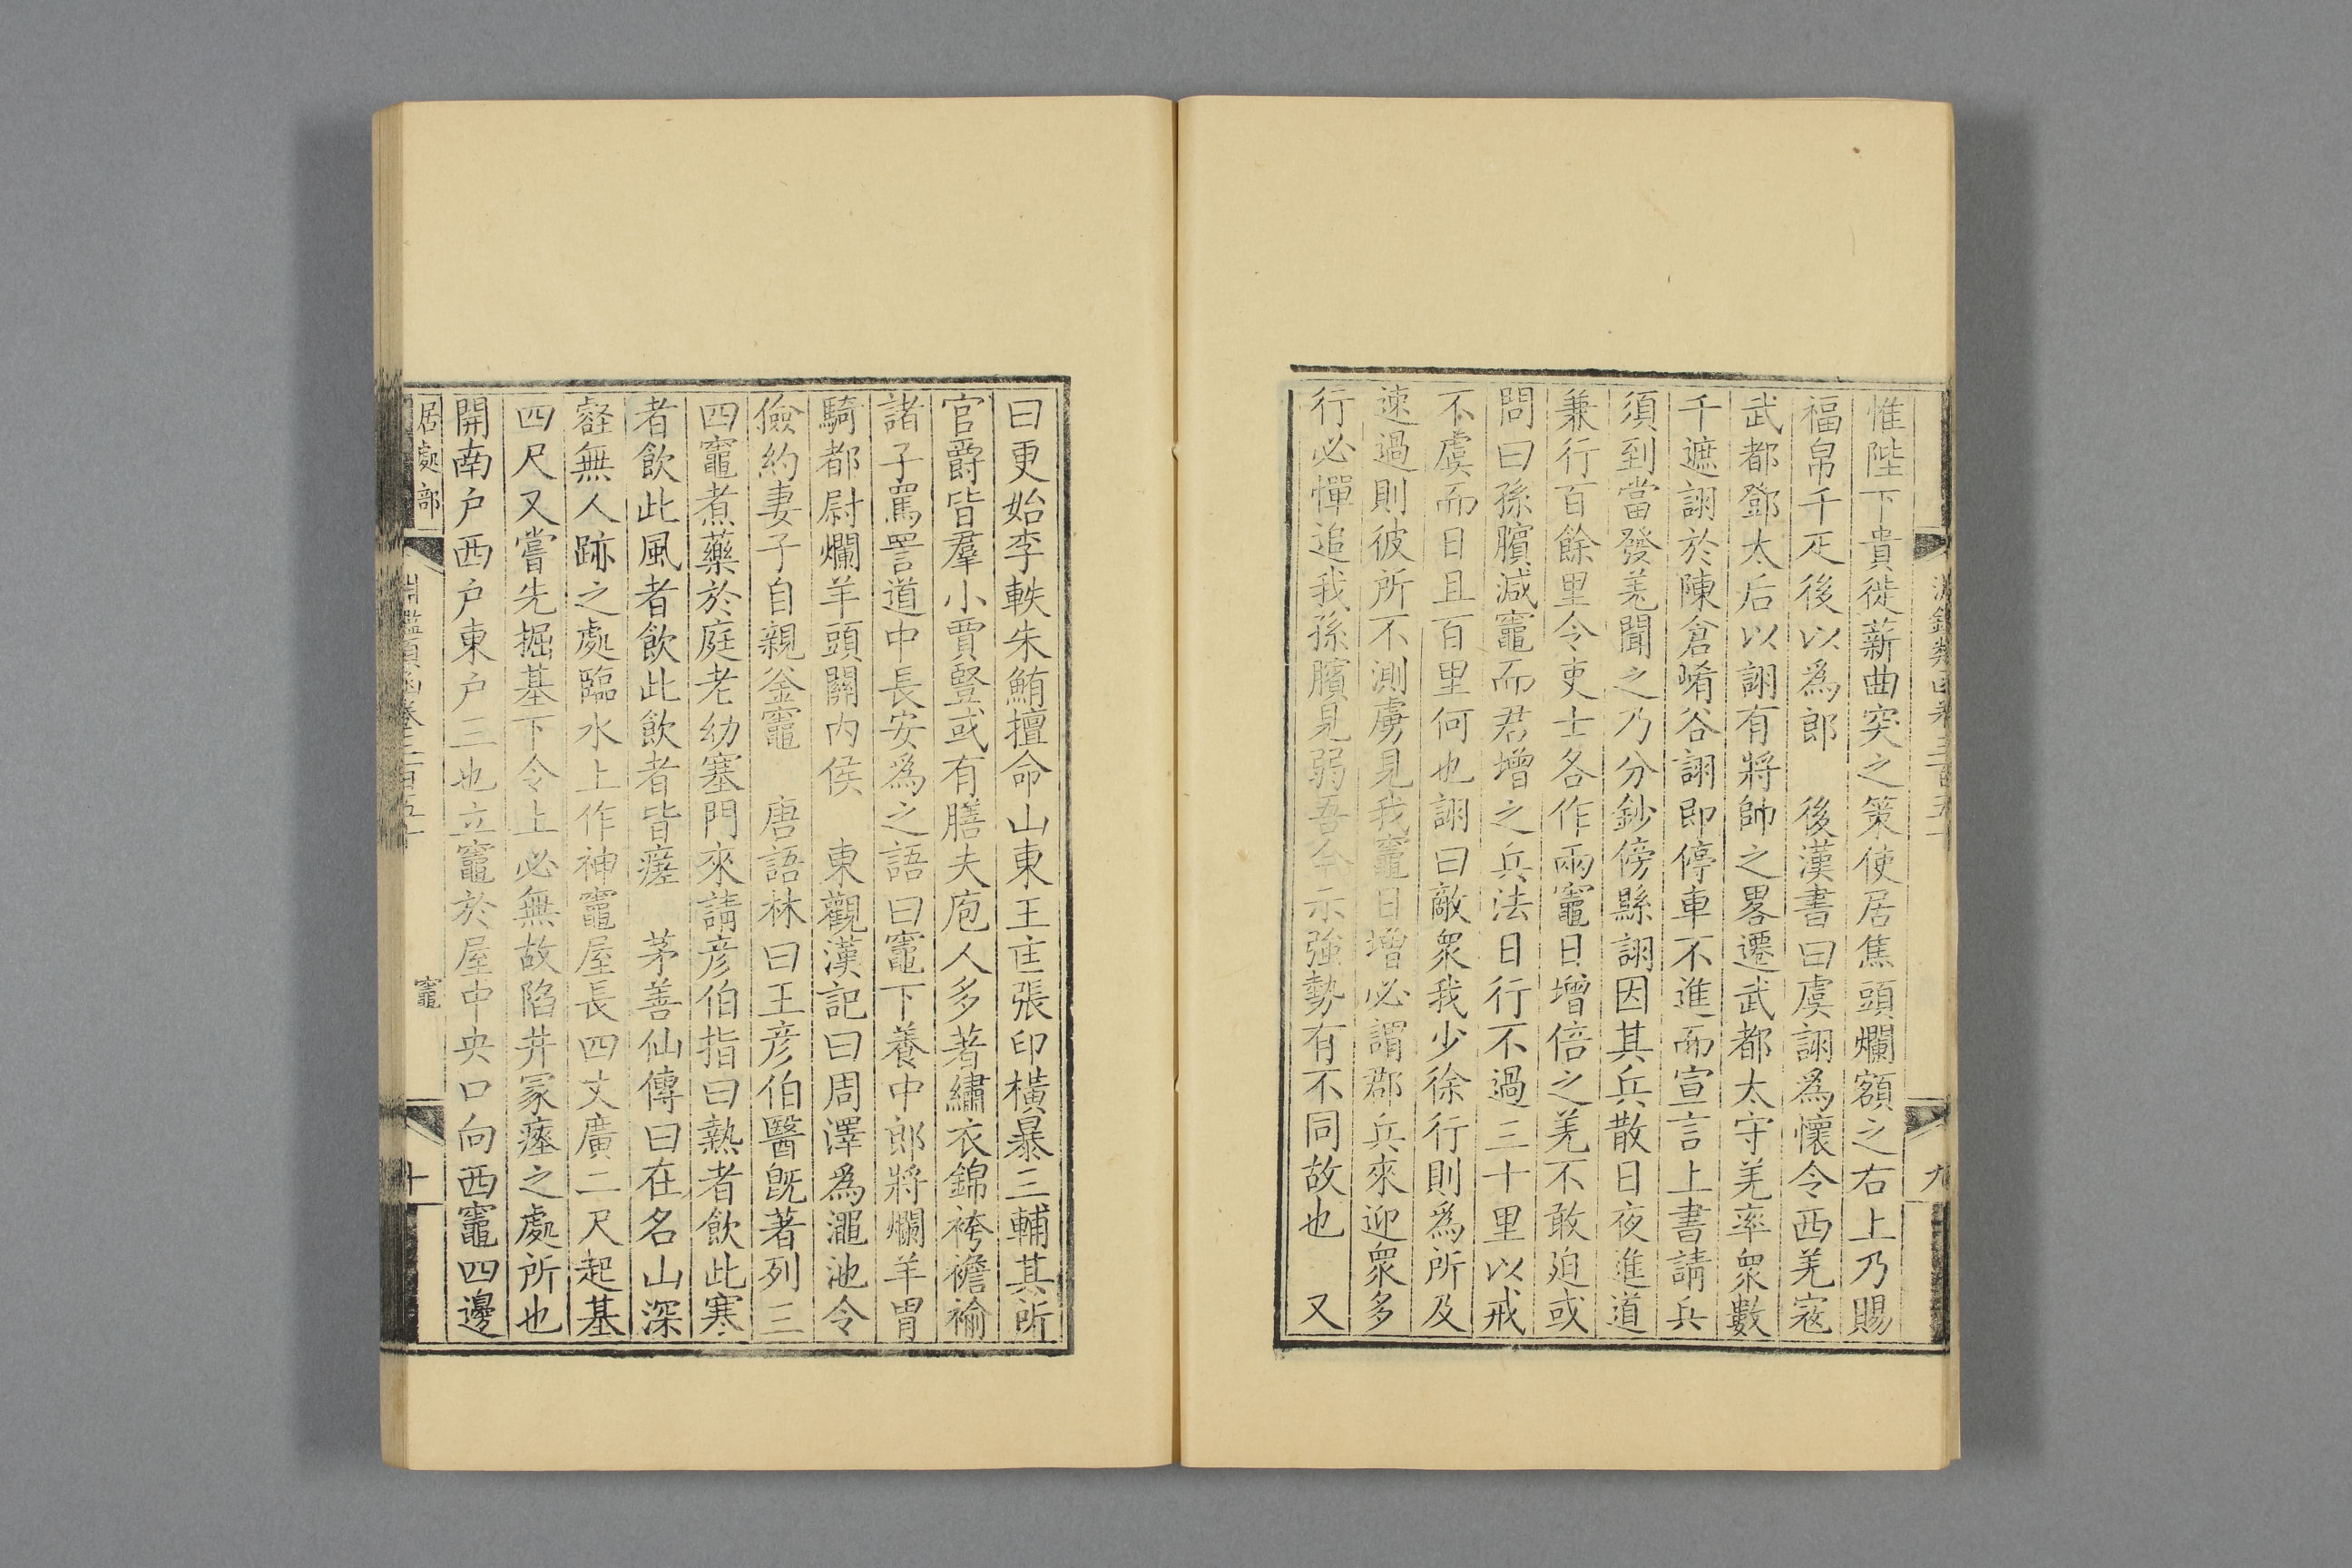 惟陛下貴徙薪曲突之策使居焦頭爛額之右上乃賜
福帛千疋後以爲郎　後漢書曰虞詡爲懷令西羌寇
武都鄧太后以詡有將帥之畧遷武都太守羌率眾數
千遮詡於陳倉崤谷詡即停車不進而宣言上書請兵
須到當發羌聞之乃分鈔傍縣詡因其兵散日夜進道
兼行百餘里令吏士各作兩竈日增倍之羌不敢迫或
問曰孫臏減竈而君增之兵法日行不過三十里以戒
不虞而日且百里何也詡曰敵眾我少徐行則爲所及
速過則彼所不測虜見我竈日增必謂郡兵來迎眾多
行必憚追我孫臏見弱吾今示強勢有不同故也　又
九
曰更始李軼朱鮪擅命山東王匡張卬橫暴三輔其所
官爵皆羣小賈豎或有膳夫庖人多著繡衣錦袴襜褕
諸子罵詈道中長安爲之語曰竈下養中郎將爛羊胃
騎都尉爛羊頭關内侯　東觀漢記曰周澤爲澠池令
儉約妻子自親釜竈　唐語林曰王彦伯醫旣著列三
四竈煮藥於庭老幼塞門來請彦伯指曰熱者飲此寒
者飲此風者飲此飲者皆瘥　茅善仙傳曰在名山深
谿無人跡之處臨水上作神竈屋長四丈廣二尺起基
四尺又嘗先掘基下令上必無故陷井冢瘞之處所也
開南户西户東户三也立竈於屋中央口向西竈四邊
居處部　淵鑑類函卷三百五十　竈　十